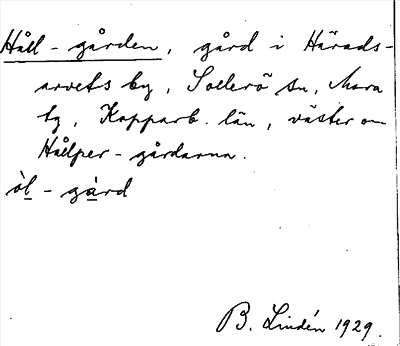 Håll-gården, gård i Härads-
arvets by, Sollerö sn, Mora
tg, Kopparb. län, väster om
Hållper-gårdarna.
òl-gàrd
B. Lindén 1929.